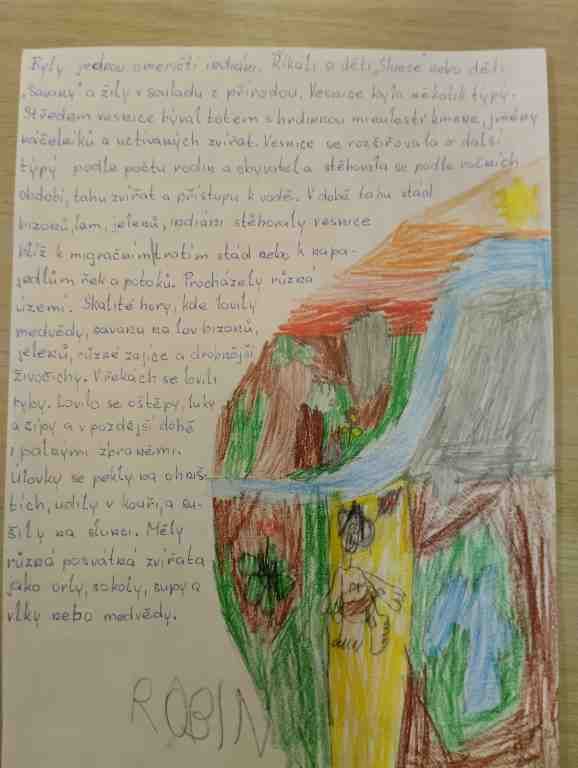 Byly jednou američtí indiáni. Říkali si děti „Slunce" nebo děti
„Savany" a žily v souladu z přírodou. Vesnice byla několik typy.
Středem vesnice býval totem s hrdinnou minulostí kmene, jmény
náčelníků a uctívaných zvířat. Vesnice se rozšiřovala o další
týpý podle počtu rodin a obyvatel a stěhovala se podle ročních
období, tahu zvířat a přístupu k vodě. V době tahu stád
bizonů, lam, jelenů, indiáni stěhovaly vesnice
blíž k migračním tratím stád nebo k napa-
jedlům řek a potoků. Procházely různá
území. Skalité hory, kde lovily
medvědy, savanu na lov bizonů,
jelenů, různé zajíce a drobnější
živočichy. V řekách se lovili
ryby. Lovilo se oštěpy, luky
a šípy a v pozdější době
i palnými zbraněmi.
Úlovky se pekly na ohniš-
tích, udily v kouři, a su-
šily na slunci. Měly
různá posvátná zvířata
jako orly, sokoly, supy a
vlky nebo medvědy.
ROBIN